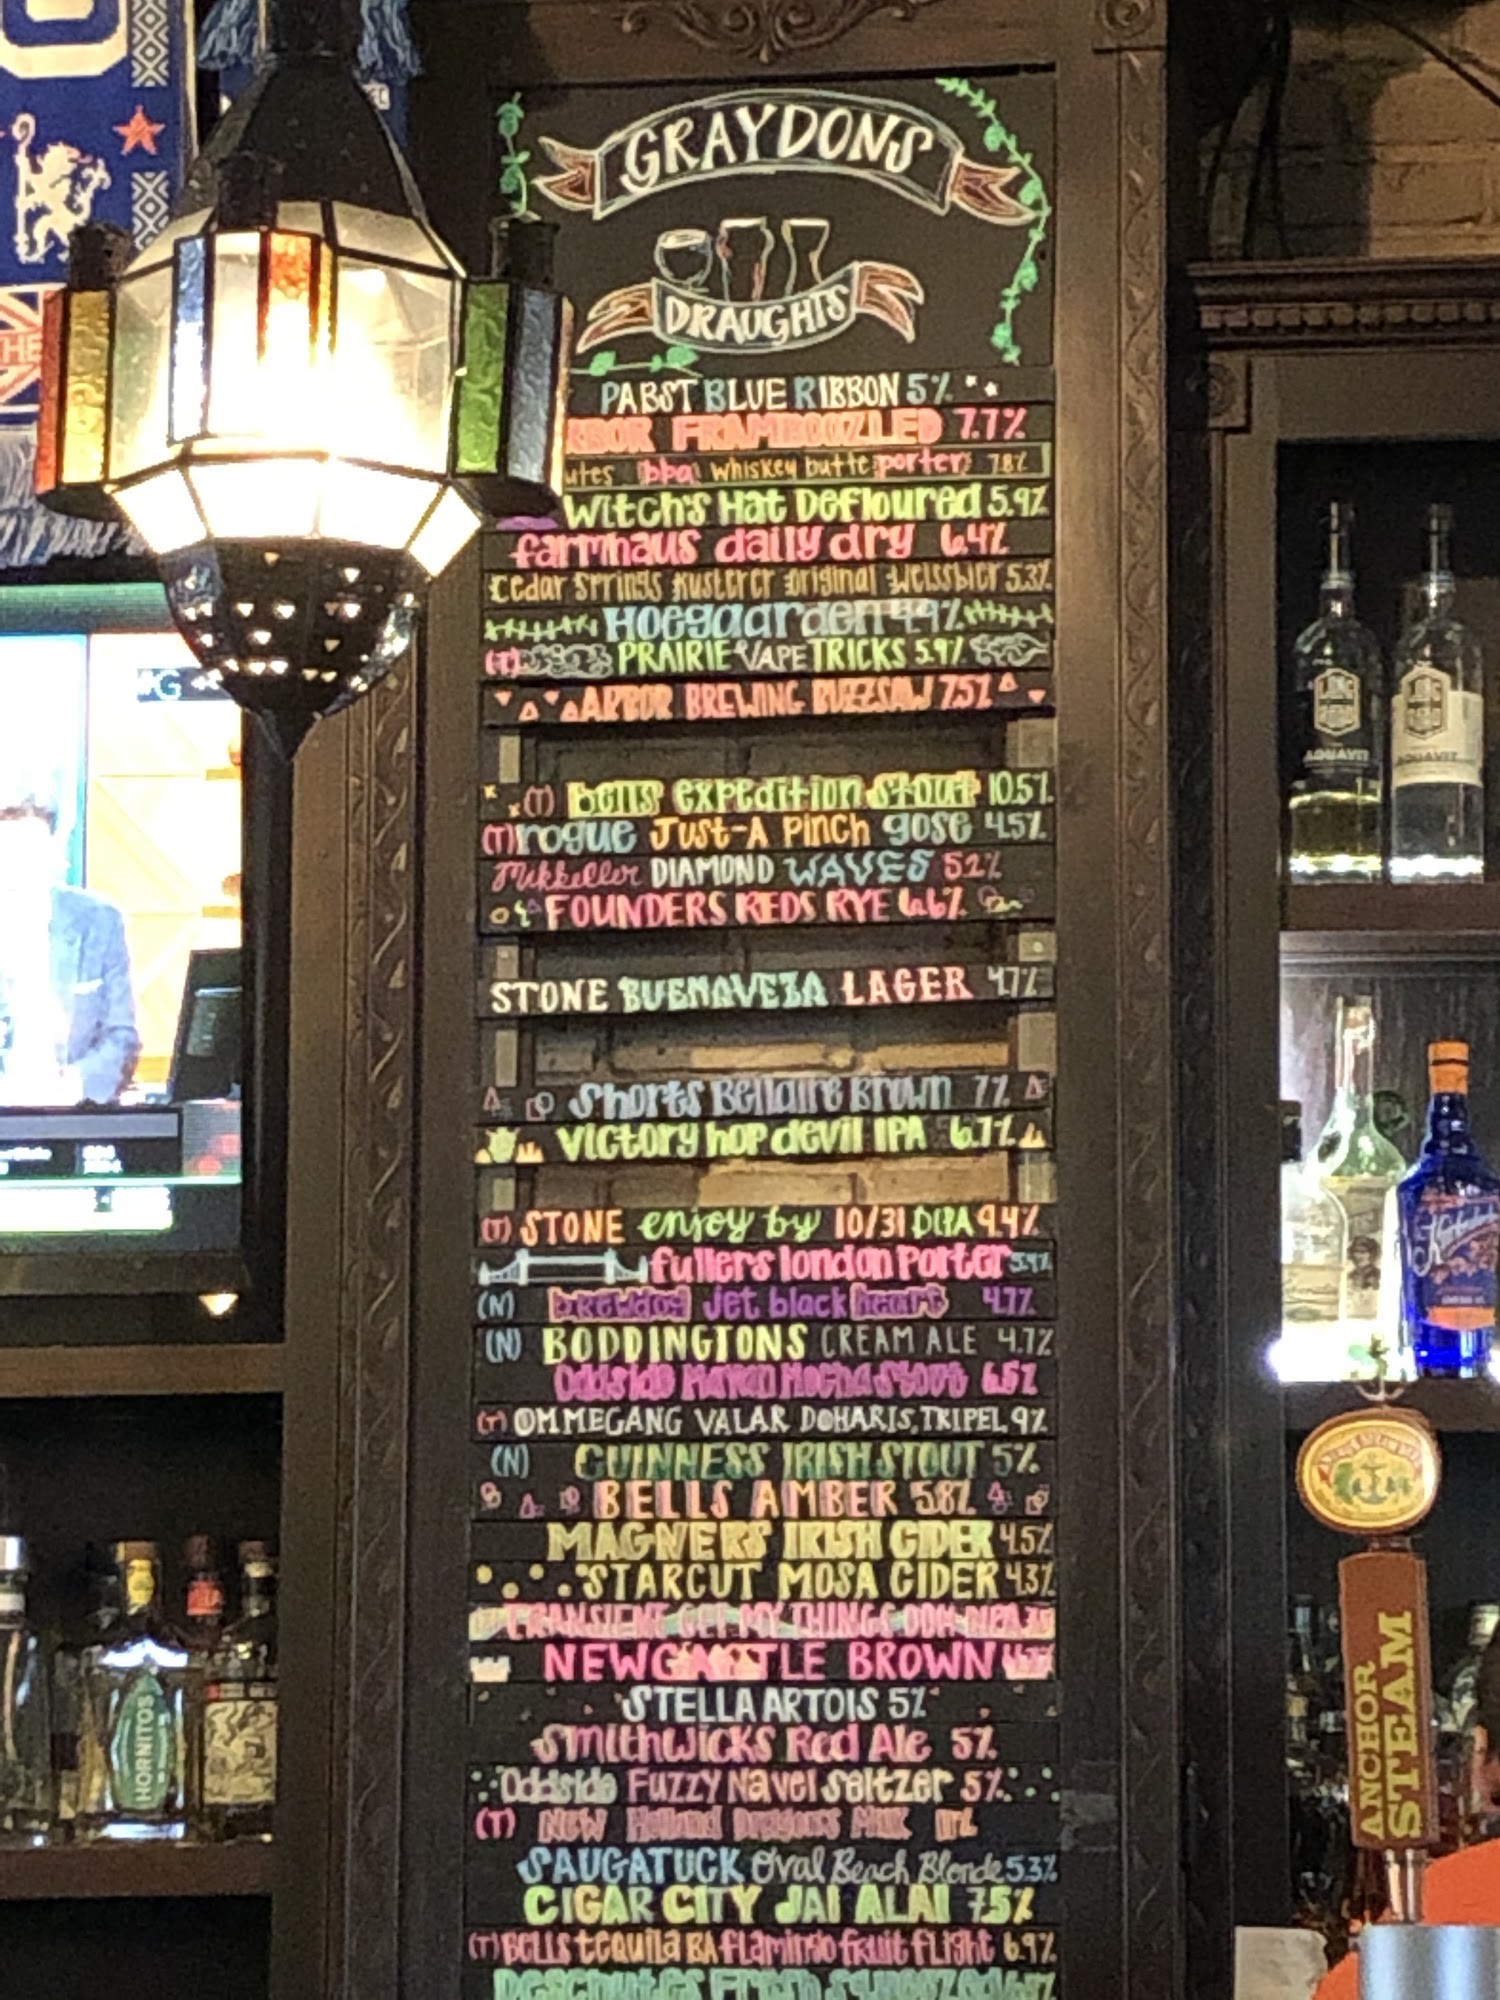 GRAYDONS
DRAUGHTS
PABST BLUE RIBBON 5%
RBOR FRAMBOOZLED 7.7%
utes bba whiskey butte porter 7.8%
Witch's Hat Defloured 5.9%
farmhaus daily dry 6.4%
Cedar Springs Kusterer Original Weissbier 5.3%
Hoegaarden 4.9%
(T) PRAIRIE VAPE TRICKS 5.9%
ARBOR BREWING BUZZSAW 7.5%
(T) bells expedition stout 10.5%
(T) rogue Just-A Pinch gose 4.5%
Mikkeller DIAMOND WAVES 5.2%
FOUNDERS REDS RYE 6.6%
STONE BUENAVEZA LAGER 4.7%
Shorts Bellaire Brown 7%
Victory hop devil IPA 6.7%
(T) STONE enjoy by 10/31 DIPA 9.4%
fullers london Porter 5.4%
(N) brewdog jet black heart 4.7%
(N) BODDINGTONS CREAM ALE 4.7%
Oddside Mayan Mocha Stout 6.5%
(T) OMMEGANG VALAR DOHARIS, TRIPEL 9%
(N) GUINNESS IRISH STOUT 5%
BELLS AMBER 5.8%
MAGNERS IRISH CIDER 4.5%
STARCUT MOSA CIDER 4.3%
TRANSIENT GET MY THINGS DDH
NEWCASTLE BROWN 4.7%
STELLA ARTOIS 5%
Smithwicks Red Ale 5%
Oddside Fuzzy Navel Seltzer 5%
(T) New Holland Dragons Milk 11%
SAUGATUCK Oval Beach Blonde 5.3%
CIGAR CITY JAI ALAI 7.5%
(T) BELLS tequila BA flamingo fruit flight 6.9%
Deschutes Fresh Squeezed
THE
AQUAVIT
AQUAVIT
HORNITOS
ANCHOR
STEAM